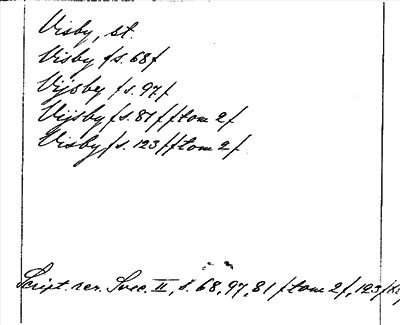 Visby, st.
Visby /s. 68/
Vijsby /s. 97/
Vijsby /s. 81/ /tom 2/
Visby /s. 123/ /tom 2/
Script. rer. Svec. II, s. 68, 97, 81 /tom 2/, 123